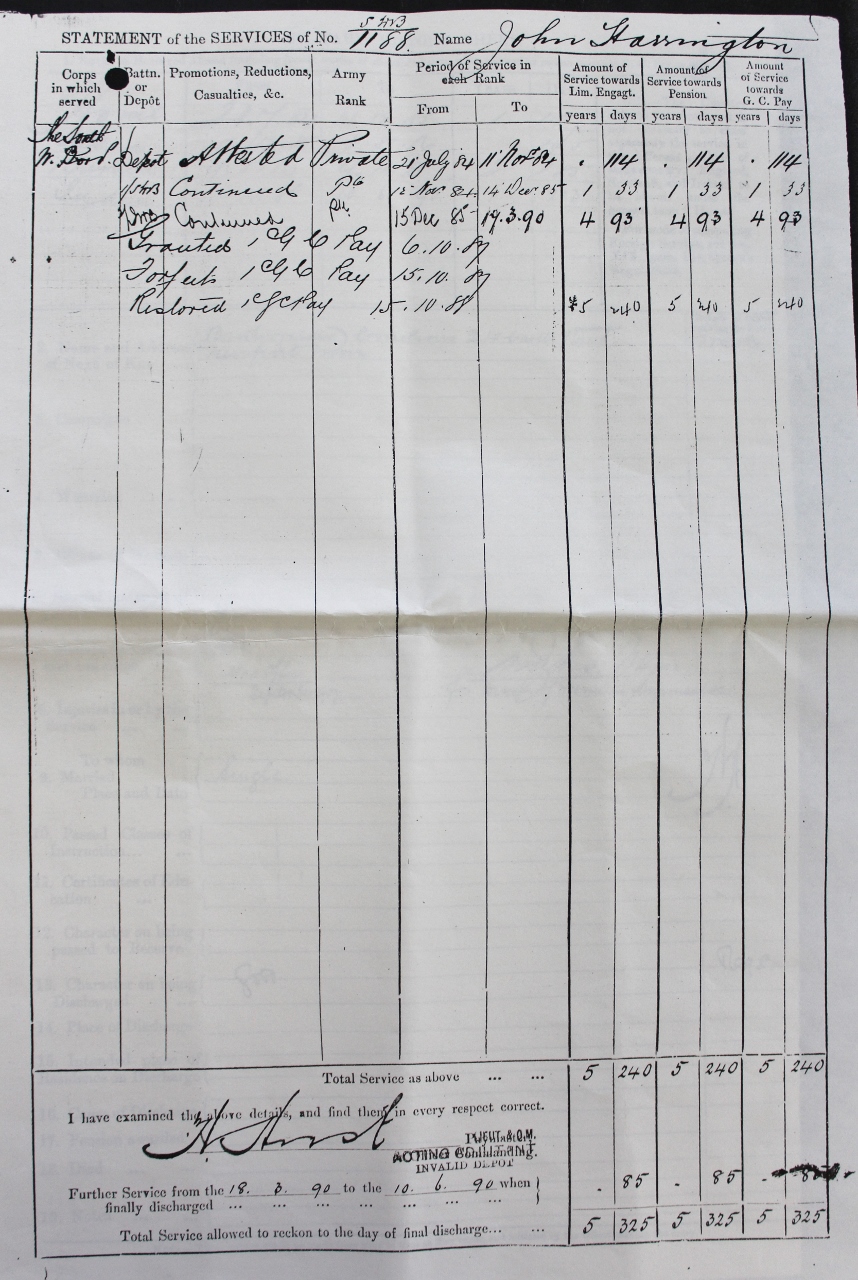 STATEMENT of the SERVICES of No. 1188. Name John Harrington
Corps in which served
Battn. or Depôt
Promotions, Reductions, Casualties, &c.
Army Rank
Period of Service in each Rank
From To
Amount of Service towards Lim. Engagt.
years days
Amount of Service towards Pension
years days
Amount of Service towards G. C. Pay
years days
The South
W. Bord. Depot Attested Private 21 July 84 11 Novr 84 . 114 . 114 . 114
Continued Pte 12 Nov 84 14 Decr 85 1 33 1 33 1 33
Continued Pte 15 Dec 85 17.3.90 4 93 4 93 4 93
Granted 1 G C Pay 6.10.87
Forfeits 1 G C Pay 15.10.87
Restored 1 G C Pay 15.10.88 5 240 5 240 5 240
Total Service as above ... ... 5 240 5 240 5 240
I have examined the above details, and find them in every respect correct.
H Hurst
LIEUT & Q.M.
ACTING ADJUTANT
INVALID DEPOT
Further Service from the 18. 3. 90 to the 10. 6. 90 when
finally discharged ... ... ... ... ... ... . 85 . 85 . 85
Total Service allowed to reckon to the day of final discharge... ... 5 325 5 325 5 325